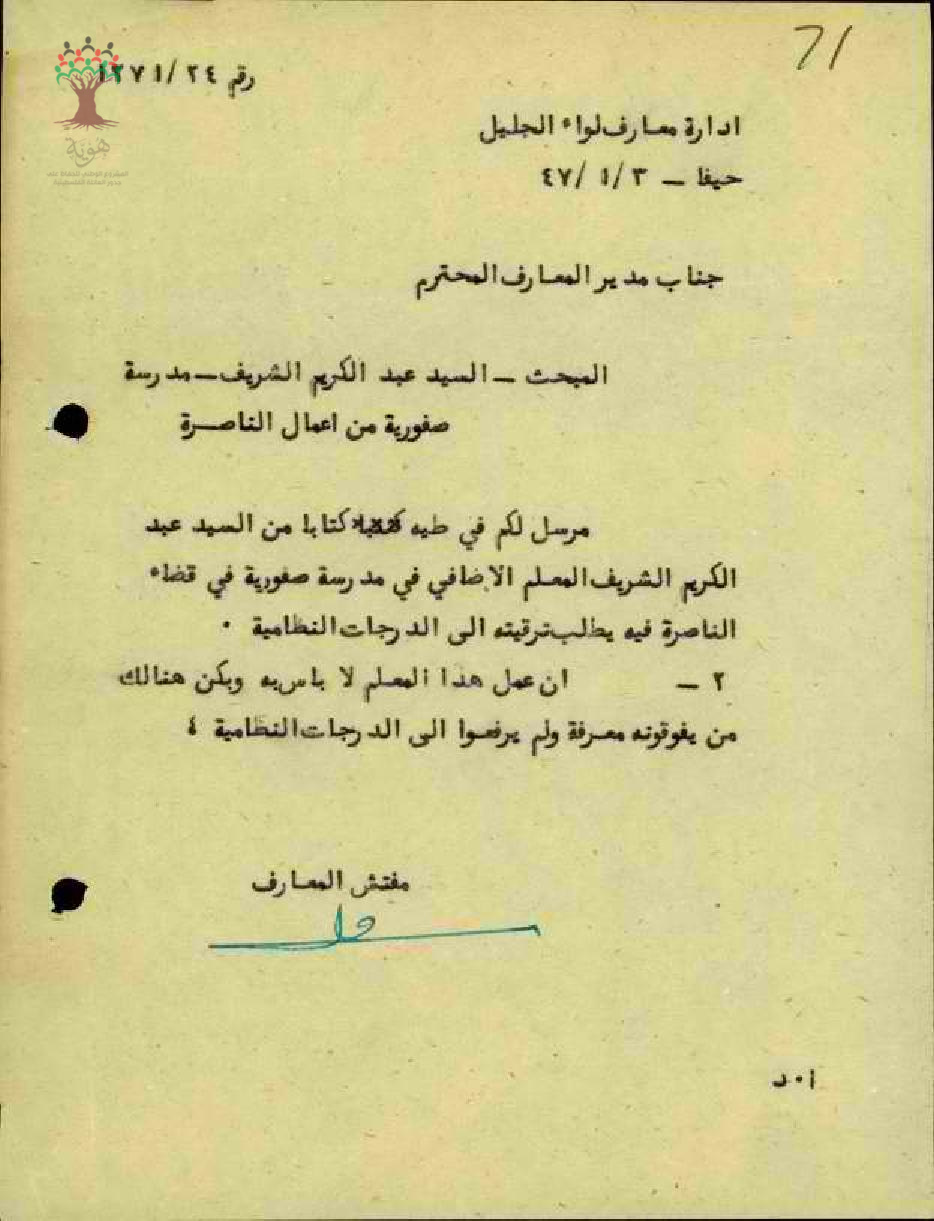 71
رقم ٢٤ /١٢٧١
هوية
ادارة معارف لواء الجليل
حيفا – ٣ /١ /٤٧
جناب مدير المعارف المحترم
المبحث – السيد عبد الكريم الشريف – مدرسة
صفورية من اعمال الناصرة
مرسل لكم في طيه كتابا من السيد عبد
الكريم الشريف المعلم الاضافي في مدرسة صفورية في قضاء
الناصرة فيه يطلب ترقيته الى الدرجات النظامية ٠
٢ – ان عمل هذا المعلم لا باس به ويكن هنالك
من يفوقونه معرفة ولم يرفعوا الى الدرجات النظامية ٤
مفتش المعارف
أ٠د